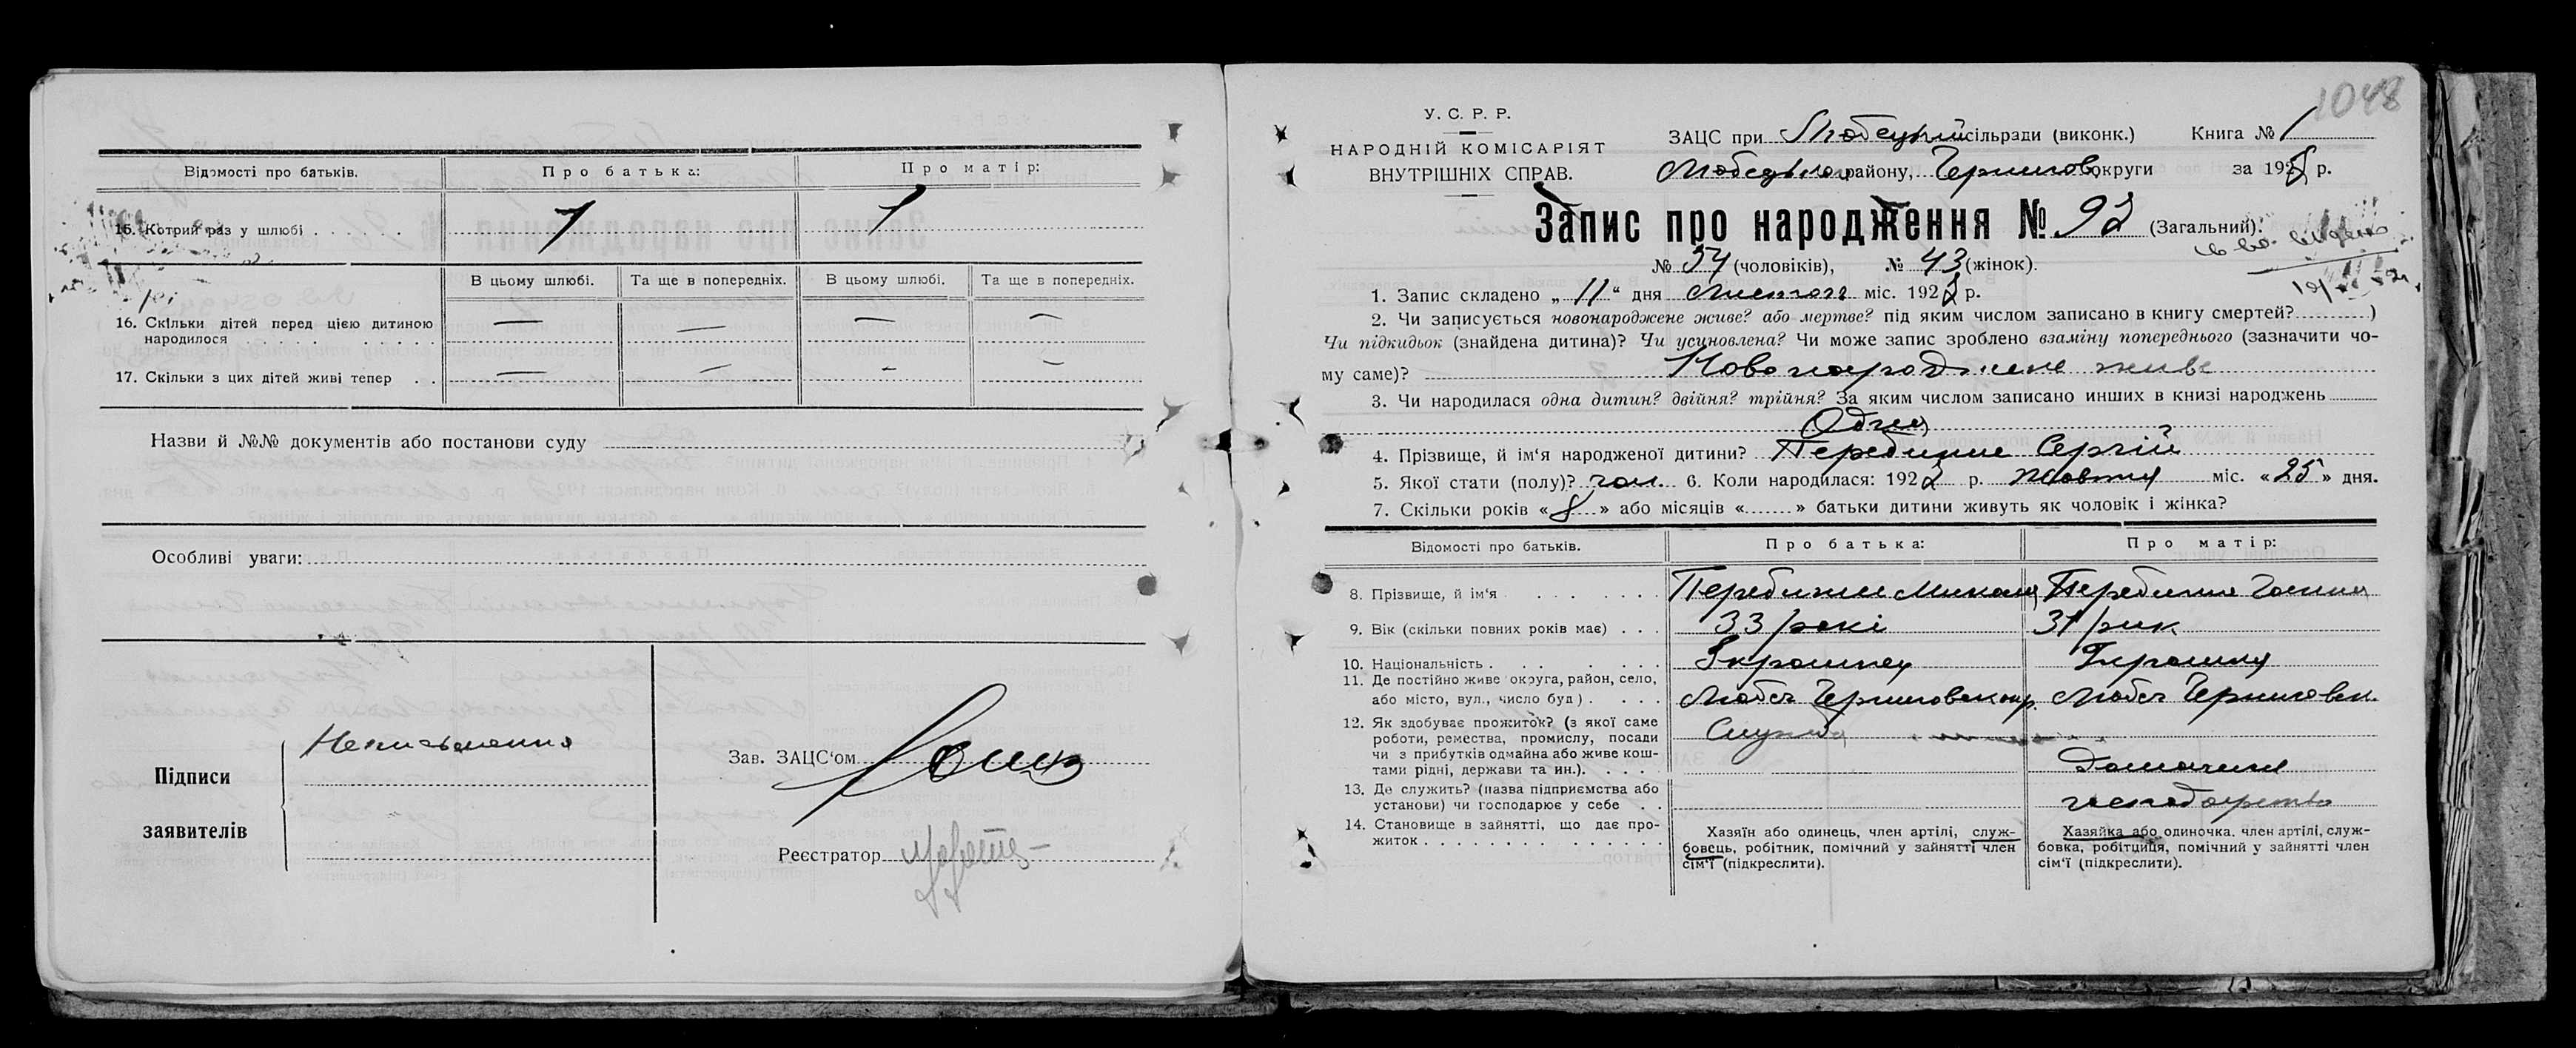 Відомості про батьків.
Про батька:
Про матір:
15. Котрий раз у шлюбі . . . . .
1
1
В цьому шлюбі.
Та ще в попередніх.
В цьому шлюбі.
Та ще в попередніх.
16. Скільки дітей перед цією дитиною
народилося . . . . . . . . .
— — — —
17. Скільки з цих дітей живі тепер . .
— — — —
Назви й №№ документів або постанови суду
Особливі уваги:
Неписьменна
Підписи
заявителів
Зав. ЗАЦС‘ом
Реєстратор
1048
У. С. Р. Р.
НАРОДНІЙ КОМІСАРІЯТ
ВНУТРІШНІХ СПРАВ.
ЗАЦС при Любецький сільради (виконк.) Книга № 1
Любецького району, Чернигов округи за 192 р.
Запис про народження № 92 (Загальний).
№ 54 (чоловіків), № 43 (жінок).
1. Запис складено „ 11 “ дня листоп міс. 192 р.
2. Чи записується новонароджене живе? або мертве? під яким числом записано в книгу смертей? )
Чи підкидьок (знайдена дитина)? Чи усиновлена? Чи може запис зроблено взаміну попереднього (зазначити чо-
му саме)? Новонароджене живе
3. Чи народилася одна дитин? двійня? трійня? За яким числом записано инших в книзі народжень
Одна
4. Прізвище, й ім‘я народженої дитини? Сергій
5. Якої стати (полу)? чол. 6. Коли народилася: 192 р. Жовтня міс. « 25 » дня.
7. Скільки років « 8 » або місяців « » батьки дитини живуть як чоловік і жінка?
Відомості про батьків.
Про батька:
Про матір:
8. Прізвище, й ім‘я . . . . . . .
9. Вік (скільки повних років має) . . .
33 рокі
31 рик
10. Національність . . . . . . .
11. Де постійно живе округа, район, село,
або місто, вул., число буд.) . . . .
Любеч Черниговск окр.
Любеч Черниговск.
12. Як здобуває прожиток? (з якої саме
роботи, ремества, промислу, посади
чи з прибутків одмайна або живе кош-
тами рідні, держави та ин.). . . . .
Служба
Домашнє
13. Де служить? (назва підприємства або
установи) чи господарює у себе . .
господарство
14. Становище в зайнятті, що дає про-
житок . . . . . . . . . . . . . .
Хазяїн або одинець, член артілі, служ-
бовець, робітник, помічний у зайнятті член
сім‘ї (підкреслити).
Хазяйка або одиночка. член артілі, служ-
бовка, робітниця, помічний у зайнятті член
сім‘ї (підкреслити).